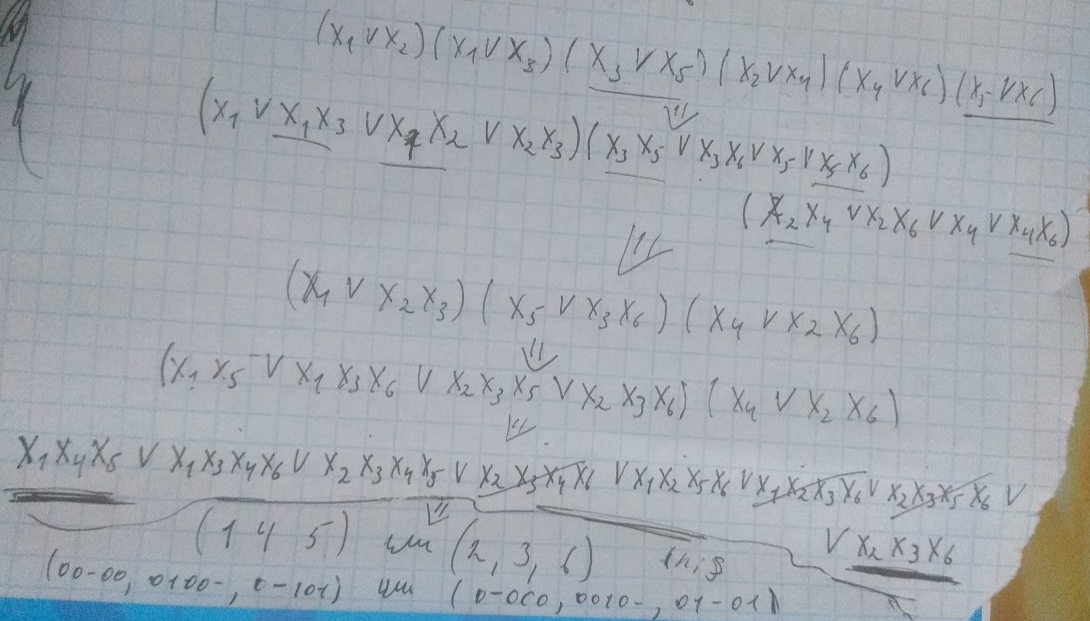 (x₁ ∨ x₂)(x₁ ∨ x₃)(x₃ ∨ x₅)(x₂ ∨ x₄)(x₄ ∨ x₆)(x₅ ∨ x₆)
(x₁ ∨ x₁x₃ ∨ x₁x₂ ∨ x₂x₃)(x₃x₅ ∨ x₃x₆ ∨ x₅ ∨ x₅x₆)
(x₂x₄ ∨ x₂x₆ ∨ x₄ ∨ x₄x₆)
(x₁ ∨ x₂x₃)(x₅ ∨ x₃x₆)(x₄ ∨ x₂x₆)
(x₁x₅ ∨ x₁x₃x₆ ∨ x₂x₃x₅ ∨ x₂x₃x₆)(x₄ ∨ x₂x₆)
x₁x₄x₅ ∨ x₁x₃x₄x₆ ∨ x₂x₃x₄x₅ ∨ x₂x₃x₄x₆ ∨ x₁x₂x₅x₆ ∨ x₁x₂x₃x₆ ∨ x₂x₃x₅x₆ ∨
∨ x₂x₃x₆
(1 4 5) или (2, 3, 6)
(00-00, 0100-, 0-101) или (0-000, 0010-, 01-01)